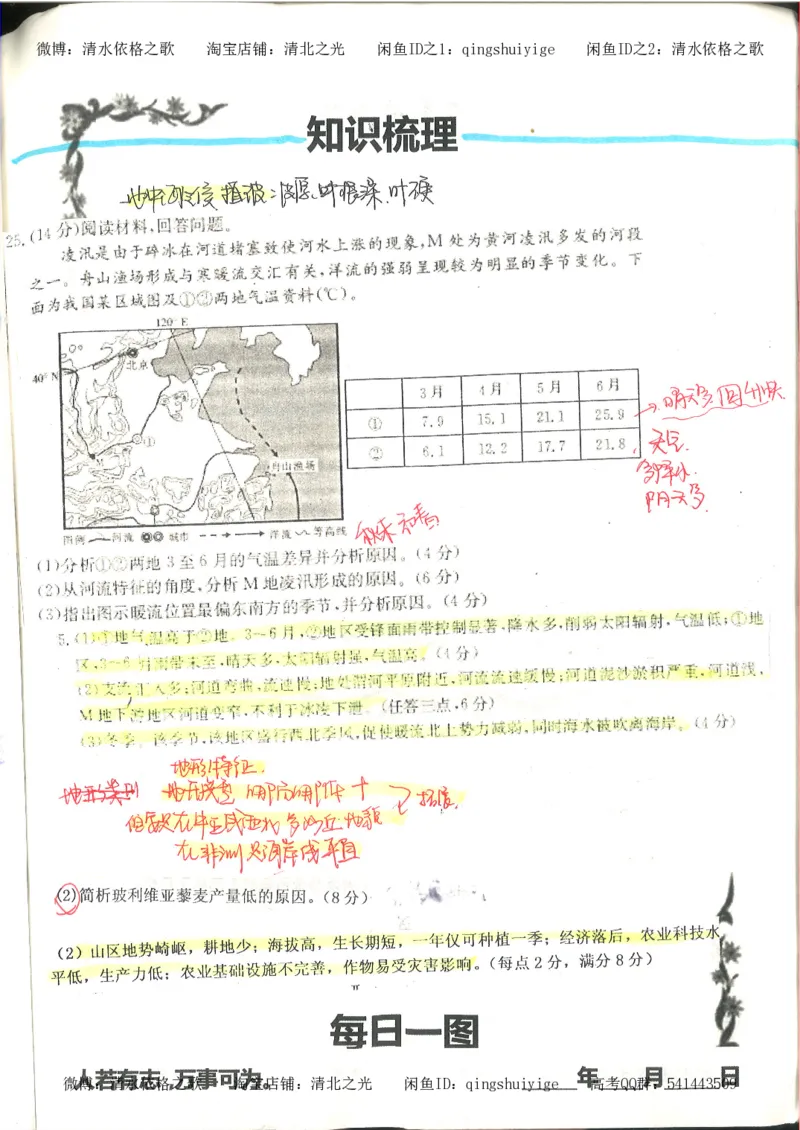 微博：清水依格之歌 淘宝店铺：清北之光 闲鱼ID之1：qingshuiyige 闲鱼ID之2：清水依格之歌
知识梳理
25.(14分)阅读材料,回答问题。
凌汛是由于碎冰在河道堵塞致使河水上涨的现象,M处为黄河凌汛多发的河段
之一。舟山渔场形成与寒暖流交汇有关,洋流的强弱呈现较为明显的季节变化。下
面为我国某区域图及①②两地气温资料(℃)。
120°E
40°N
北京
①
舟山渔场
图例 河流 城市 洋流 等高线
3月 4月 5月 6月
① 7.9 15.1 21.1 25.9
② 6.1 12.2 17.7 21.8
多降水
阴天多
(1)分析①②两地3至6月的气温差异并分析原因。(4分)
(2)从河流特征的角度,分析M地凌汛形成的原因。(6分)
(3)指出图示暖流位置最偏东南方的季节,并分析原因。(4分)
5.(1)①地气温高于②地。3~6月,②地区受锋面雨带控制显著,降水多,削弱太阳辐射,气温低;①地
区,3~6月雨带未至,晴天多,太阳辐射强,气温高。(4分)
(2)支流汇入多;河道弯曲,流速慢;地处渭河平原附近,河流流速缓慢;河道泥沙淤积严重,河道浅,
M地下游地区河道变窄,不利于冰凌下泄。(任答三点,6分)
(3)冬季。该季节,该地区盛行西北季风,促使暖流北上势力减弱,同时海水被吹离海岸。(4分)
地形特征.
地形类别
(2)简析玻利维亚藜麦产量低的原因。(8分)
(2)山区地势崎岖，耕地少；海拔高，生长期短，一年仅可种植一季；经济落后，农业科技水
平低，生产力低；农业基础设施不完善，作物易受灾害影响。(每点2分，满分8分)
每日一图
人若有志 万事可为。 年 月 日
微博：清水依格之歌 淘宝店铺：清北之光 闲鱼ID：qingshuiyige 高考QQ群：541443509